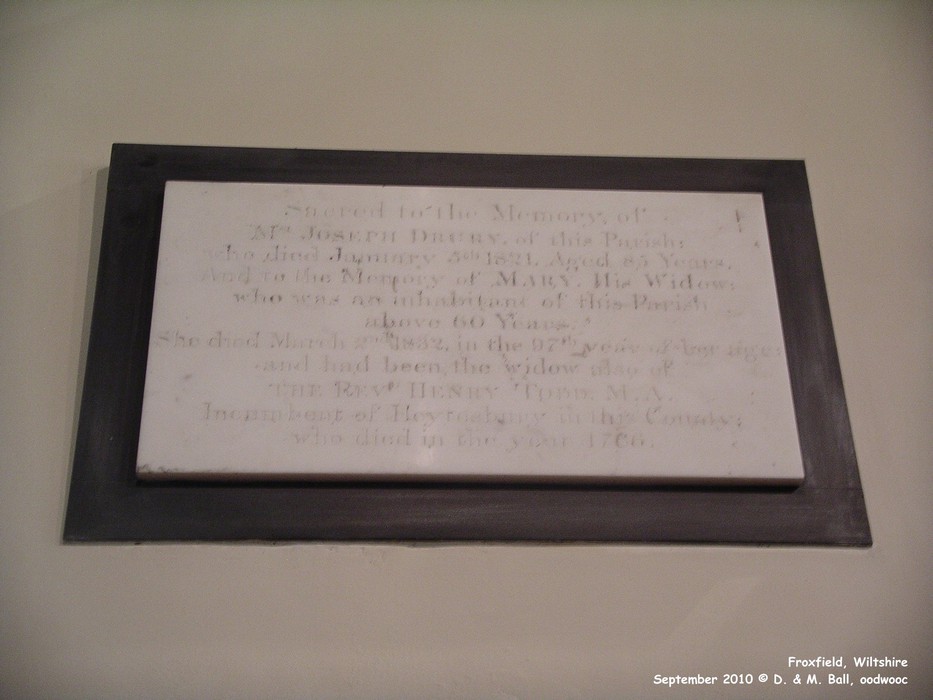 Sacred to the Memory, of
Mr. JOSEPH DRURY, of this Parish;
who died January 5th 1821, Aged 85 Years.
And to the Memory of MARY, His Widow;
who was an inhabitant of this Parish
above 60 Years.
She died March 2nd 1832, in the 97th year of her age;
and had been the widow also of
THE REVD HENRY TODD, M.A.
Incumbent of Heytesbury in this County;
who died in the year
Froxfield, Wiltshire
September 2010 © D. & M. Ball, oodwooc